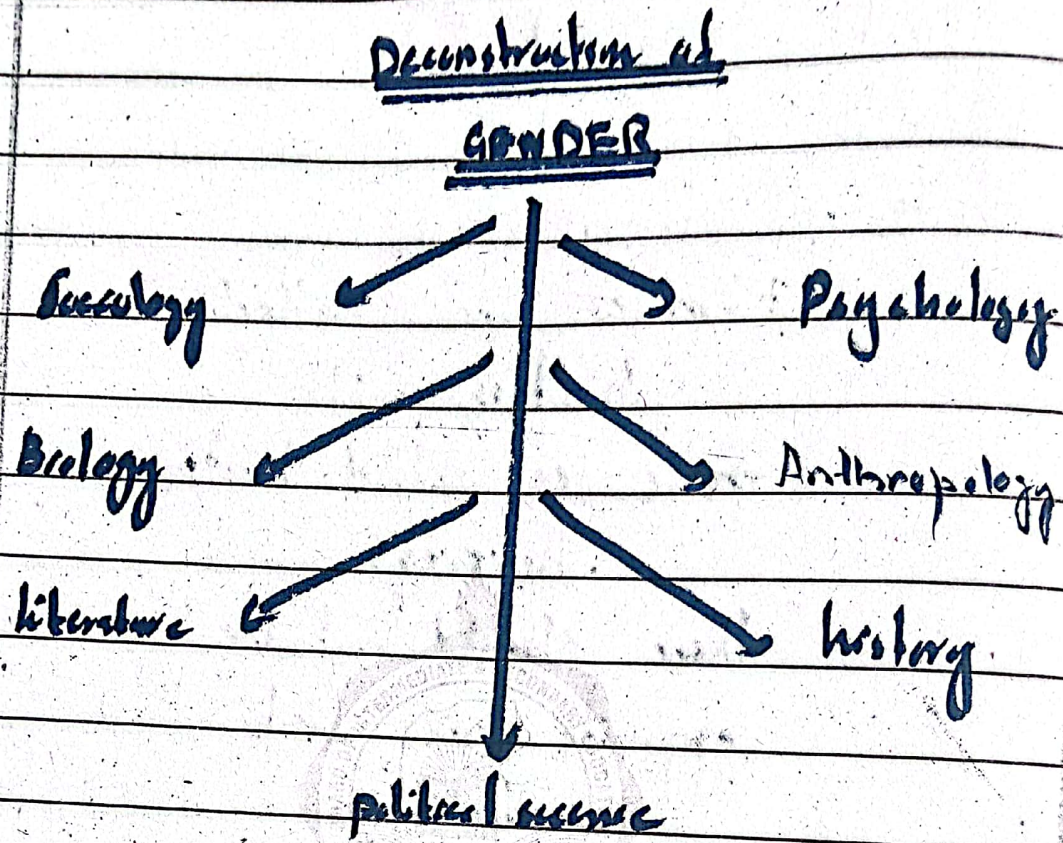 Deconstruction of
GENDER
Sociology Psychology
Biology Anthropology
literature history
political science